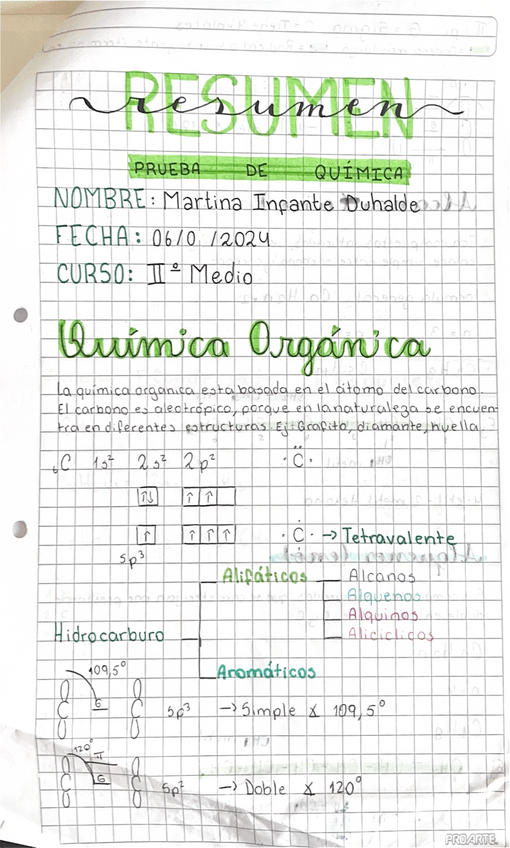 RESUMEN
resumen
PRUEBA DE QUÍMICA
NOMBRE: Martina Infante Duhalde
FECHA: 06/0 /2024
CURSO: IIº Medio
Química Orgánica
La química orgánica esta basada en el átomo del carbono.
El carbono es alotrópico, porque en la naturaleza se encuen-
tra en diferentes estructuras. Ej: Grafito, diamante, huella.
₆C 1s² 2s² 2p² · C̈ ·
↑↓ ↑ ↑
↑ ↑ ↑ ↑ · Ċ · → Tetravalente
sp³
Alifáticos Alcanos
Alquenos
Alquinos
Hidrocarburo Aliciclicos
Aromáticos
109,5°
C C sp³ → Simple ∡ 109,5°
120° π
C C sp² → Doble ∡ 120°
PROARTE